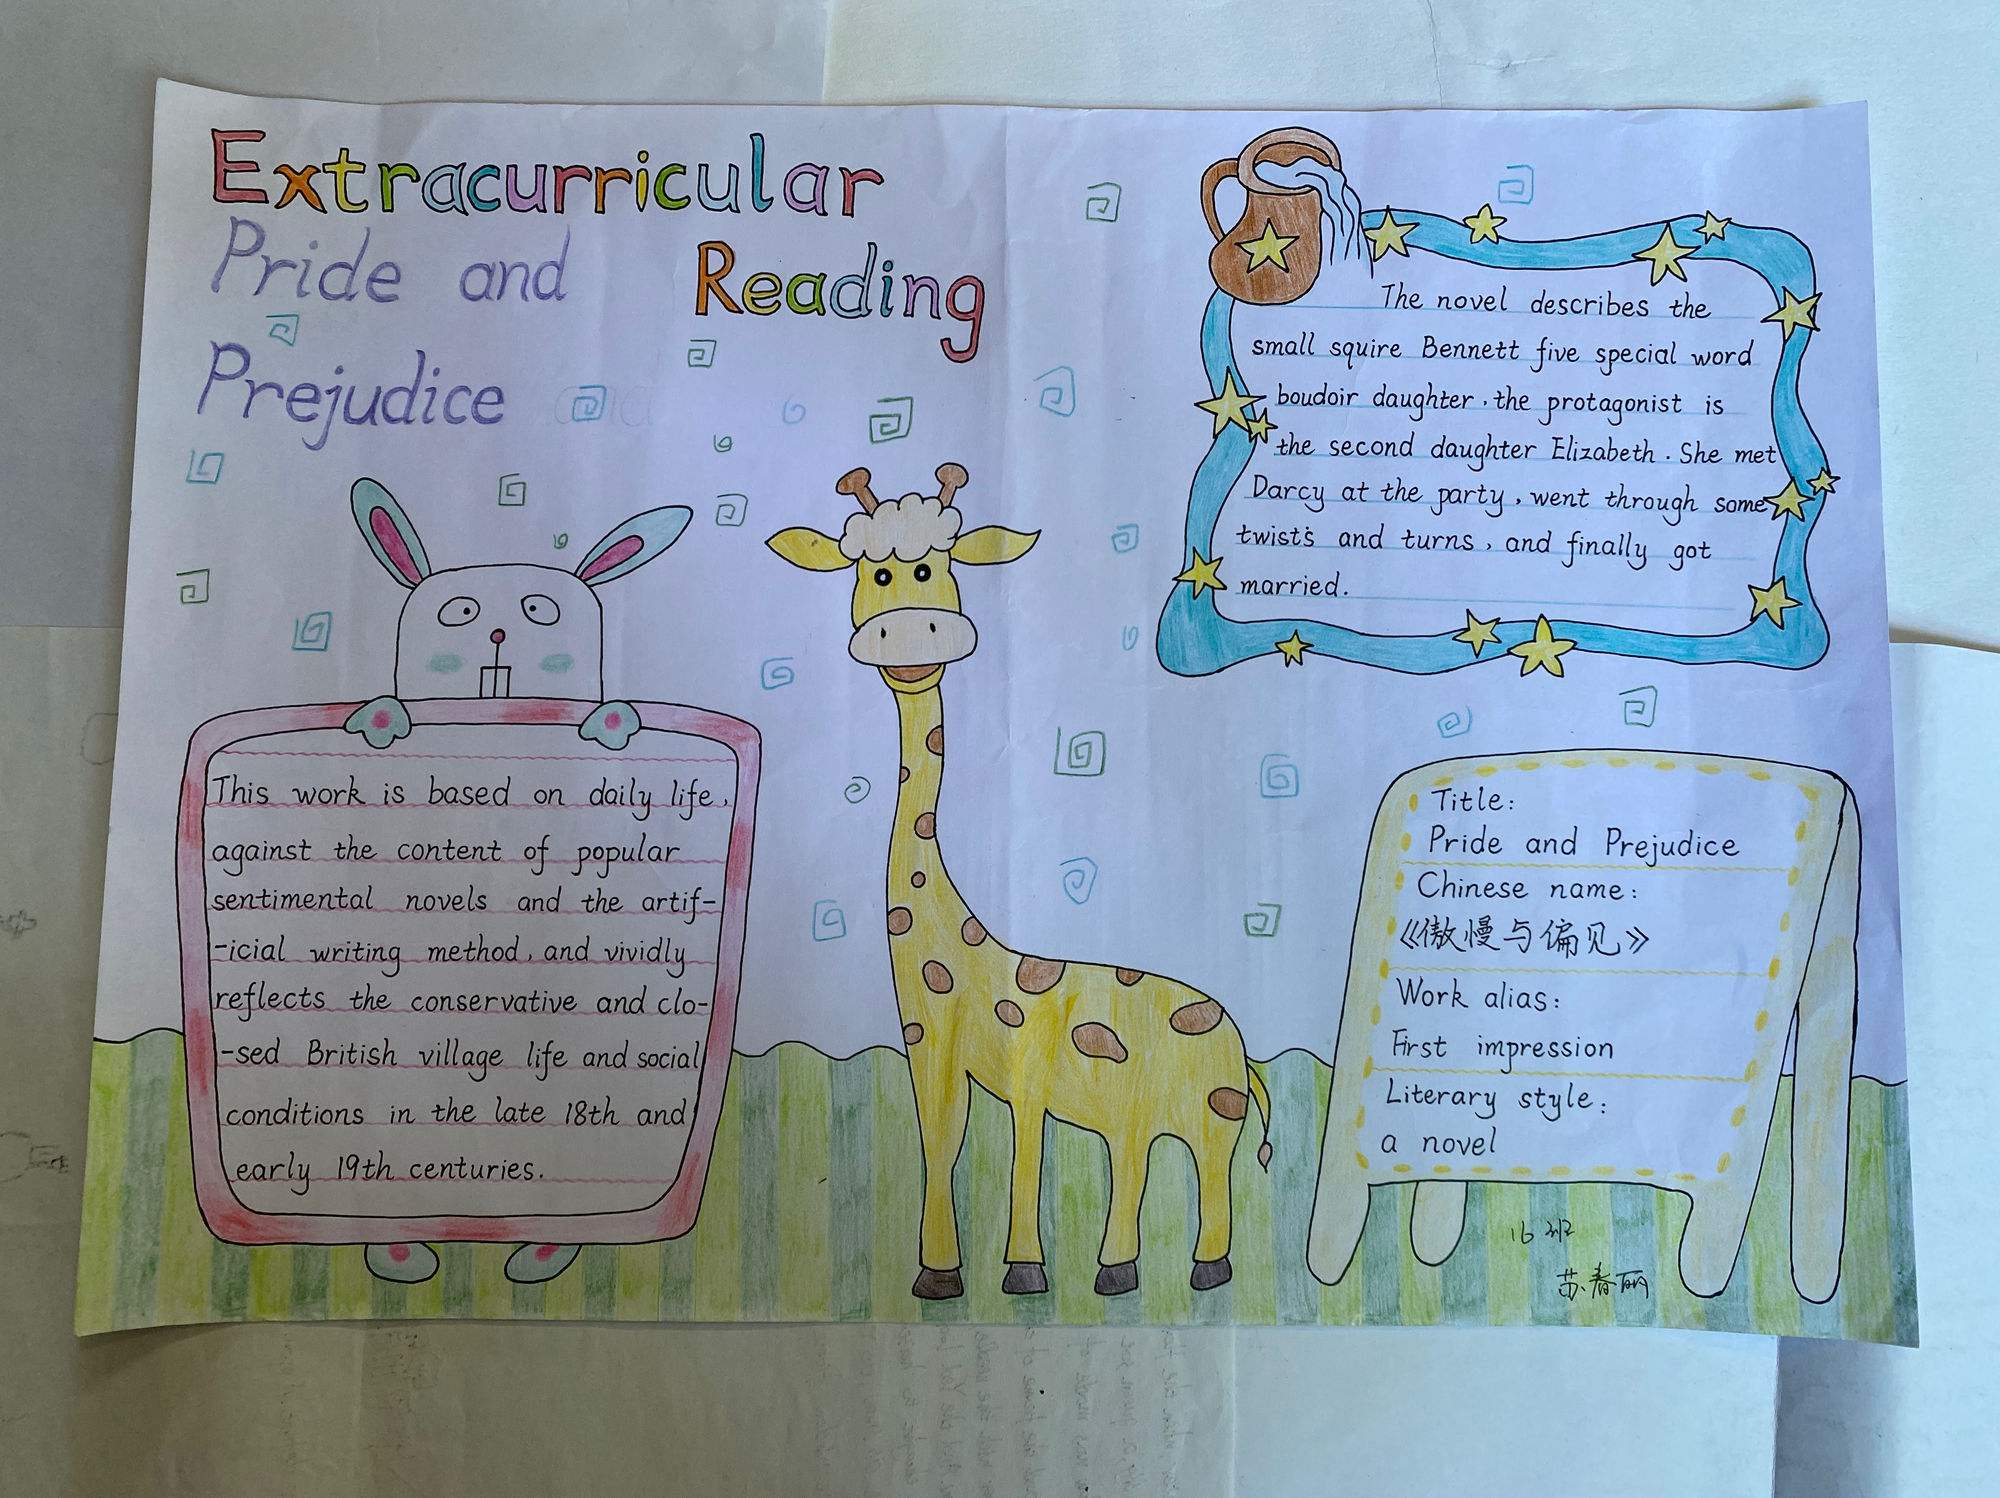 Extracurricular
Reading
Pride and
Prejudice
The novel describes the
small squire Bennett five special word
boudoir daughter, the protagonist is
the second daughter Elizabeth. She met
Darcy at the party, went through some
twists and turns, and finally got
married.
This work is based on daily life,
against the content of popular
sentimental novels and the artif-
-icial writing method, and vividly
reflects the conservative and clo-
-sed British village life and social
conditions in the late 18th and
early 19th centuries.
Title:
Pride and Prejudice
Chinese name:
《傲慢与偏见》
Work alias:
First impression
Literary style:
a novel
16班
苏春丽